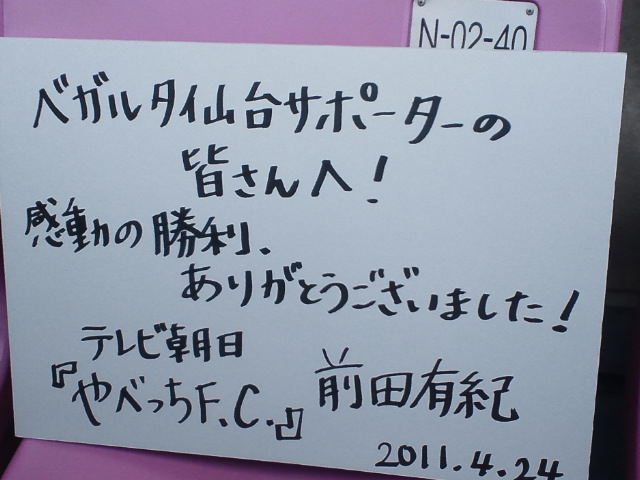 N-02-40
ベガルタ仙台サポーターの
皆さんへ!
感動の勝利、
ありがとうございました!
テレビ朝日
『やべっちF.C.』 前田有紀
2011.4.24